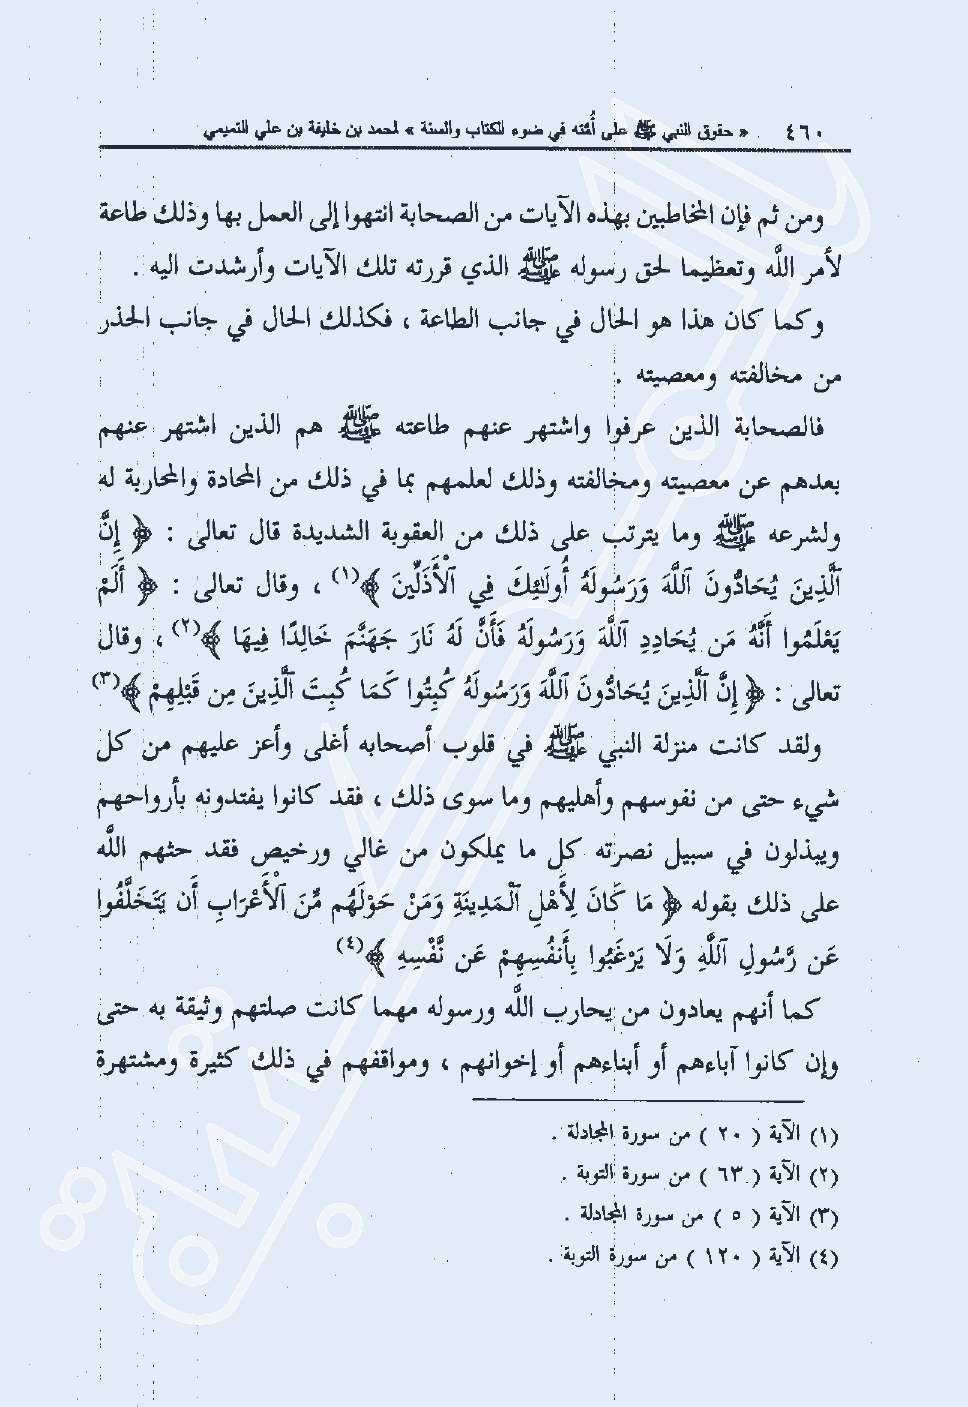 ٤٦٠ « حقوق النبي ﷺ على أُمّته في ضوء الكتاب والسنة » لمحمد بن خليفة بن علي التميمي
ومن ثم فإن المخاطبين بهذه الآيات من الصحابة انتهوا إلى العمل بها وذلك طاعة
لأمر اللَّه وتعظيما لحق رسوله ﷺ الذي قررته تلك الآيات وأرشدت اليه .
وكما كان هذا هو الحال في جانب الطاعة ، فكذلك الحال في جانب الحذر
من مخالفته ومعصيته .
فالصحابة الذين عرفوا واشتهر عنهم طاعته ﷺ هم الذين اشتهر عنهم
بعدهم عن معصيته ومخالفته وذلك لعلمهم بما في ذلك من المحادة والمحاربة له
ولشرعه ﷺ وما يترتب على ذلك من العقوبة الشديدة قال تعالى : ﴿ إِنَّ
ٱلَّذِينَ يُحَادُّونَ ٱللَّهَ وَرَسُولَهُ أُولَٰئِكَ فِي ٱلْأَذَلِّينَ ﴾(١) ، وقال تعالى : ﴿ أَلَمْ
يَعْلَمُوا أَنَّهُ مَن يُحَادِدِ ٱللَّهَ وَرَسُولَهُ فَأَنَّ لَهُ نَارَ جَهَنَّمَ خَالِدًا فِيهَا ﴾(٢) ، وقال
تعالى : ﴿ إِنَّ ٱلَّذِينَ يُحَادُّونَ ٱللَّهَ وَرَسُولَهُ كُبِتُوا كَمَا كُبِتَ ٱلَّذِينَ مِن قَبْلِهِمْ ﴾(٣)
ولقد كانت منزلة النبي ﷺ في قلوب أصحابه أغلى وأعز عليهم من كل
شيء حتى من نفوسهم وأهليهم وما سوى ذلك ، فقد كانوا يفتدونه بأرواحهم
ويبذلون في سبيل نصرته كل ما يملكون من غالي ورخيص فقد حثهم اللَّه
على ذلك بقوله ﴿ مَا كَانَ لِأَهْلِ ٱلْمَدِينَةِ وَمَنْ حَوْلَهُم مِّنَ ٱلْأَعْرَابِ أَن يَتَخَلَّفُوا
عَن رَّسُولِ ٱللَّهِ وَلَا يَرْغَبُوا بِأَنفُسِهِمْ عَن نَّفْسِهِ ﴾(٤)
كما أنهم يعادون من يحارب اللَّه ورسوله مهما كانت صلتهم وثيقة به حتى
وإن كانوا آباءهم أو أبناءهم أو إخوانهم ، ومواقفهم في ذلك كثيرة ومشتهرة
(١) الآية ( ٢٠ ) من سورة المجادلة .
(٢) الآية ( ٦٣ ) من سورة التوبة .
(٣) الآية ( ٥ ) من سورة المجادلة .
(٤) الآية ( ١٢٠ ) من سورة التوبة .